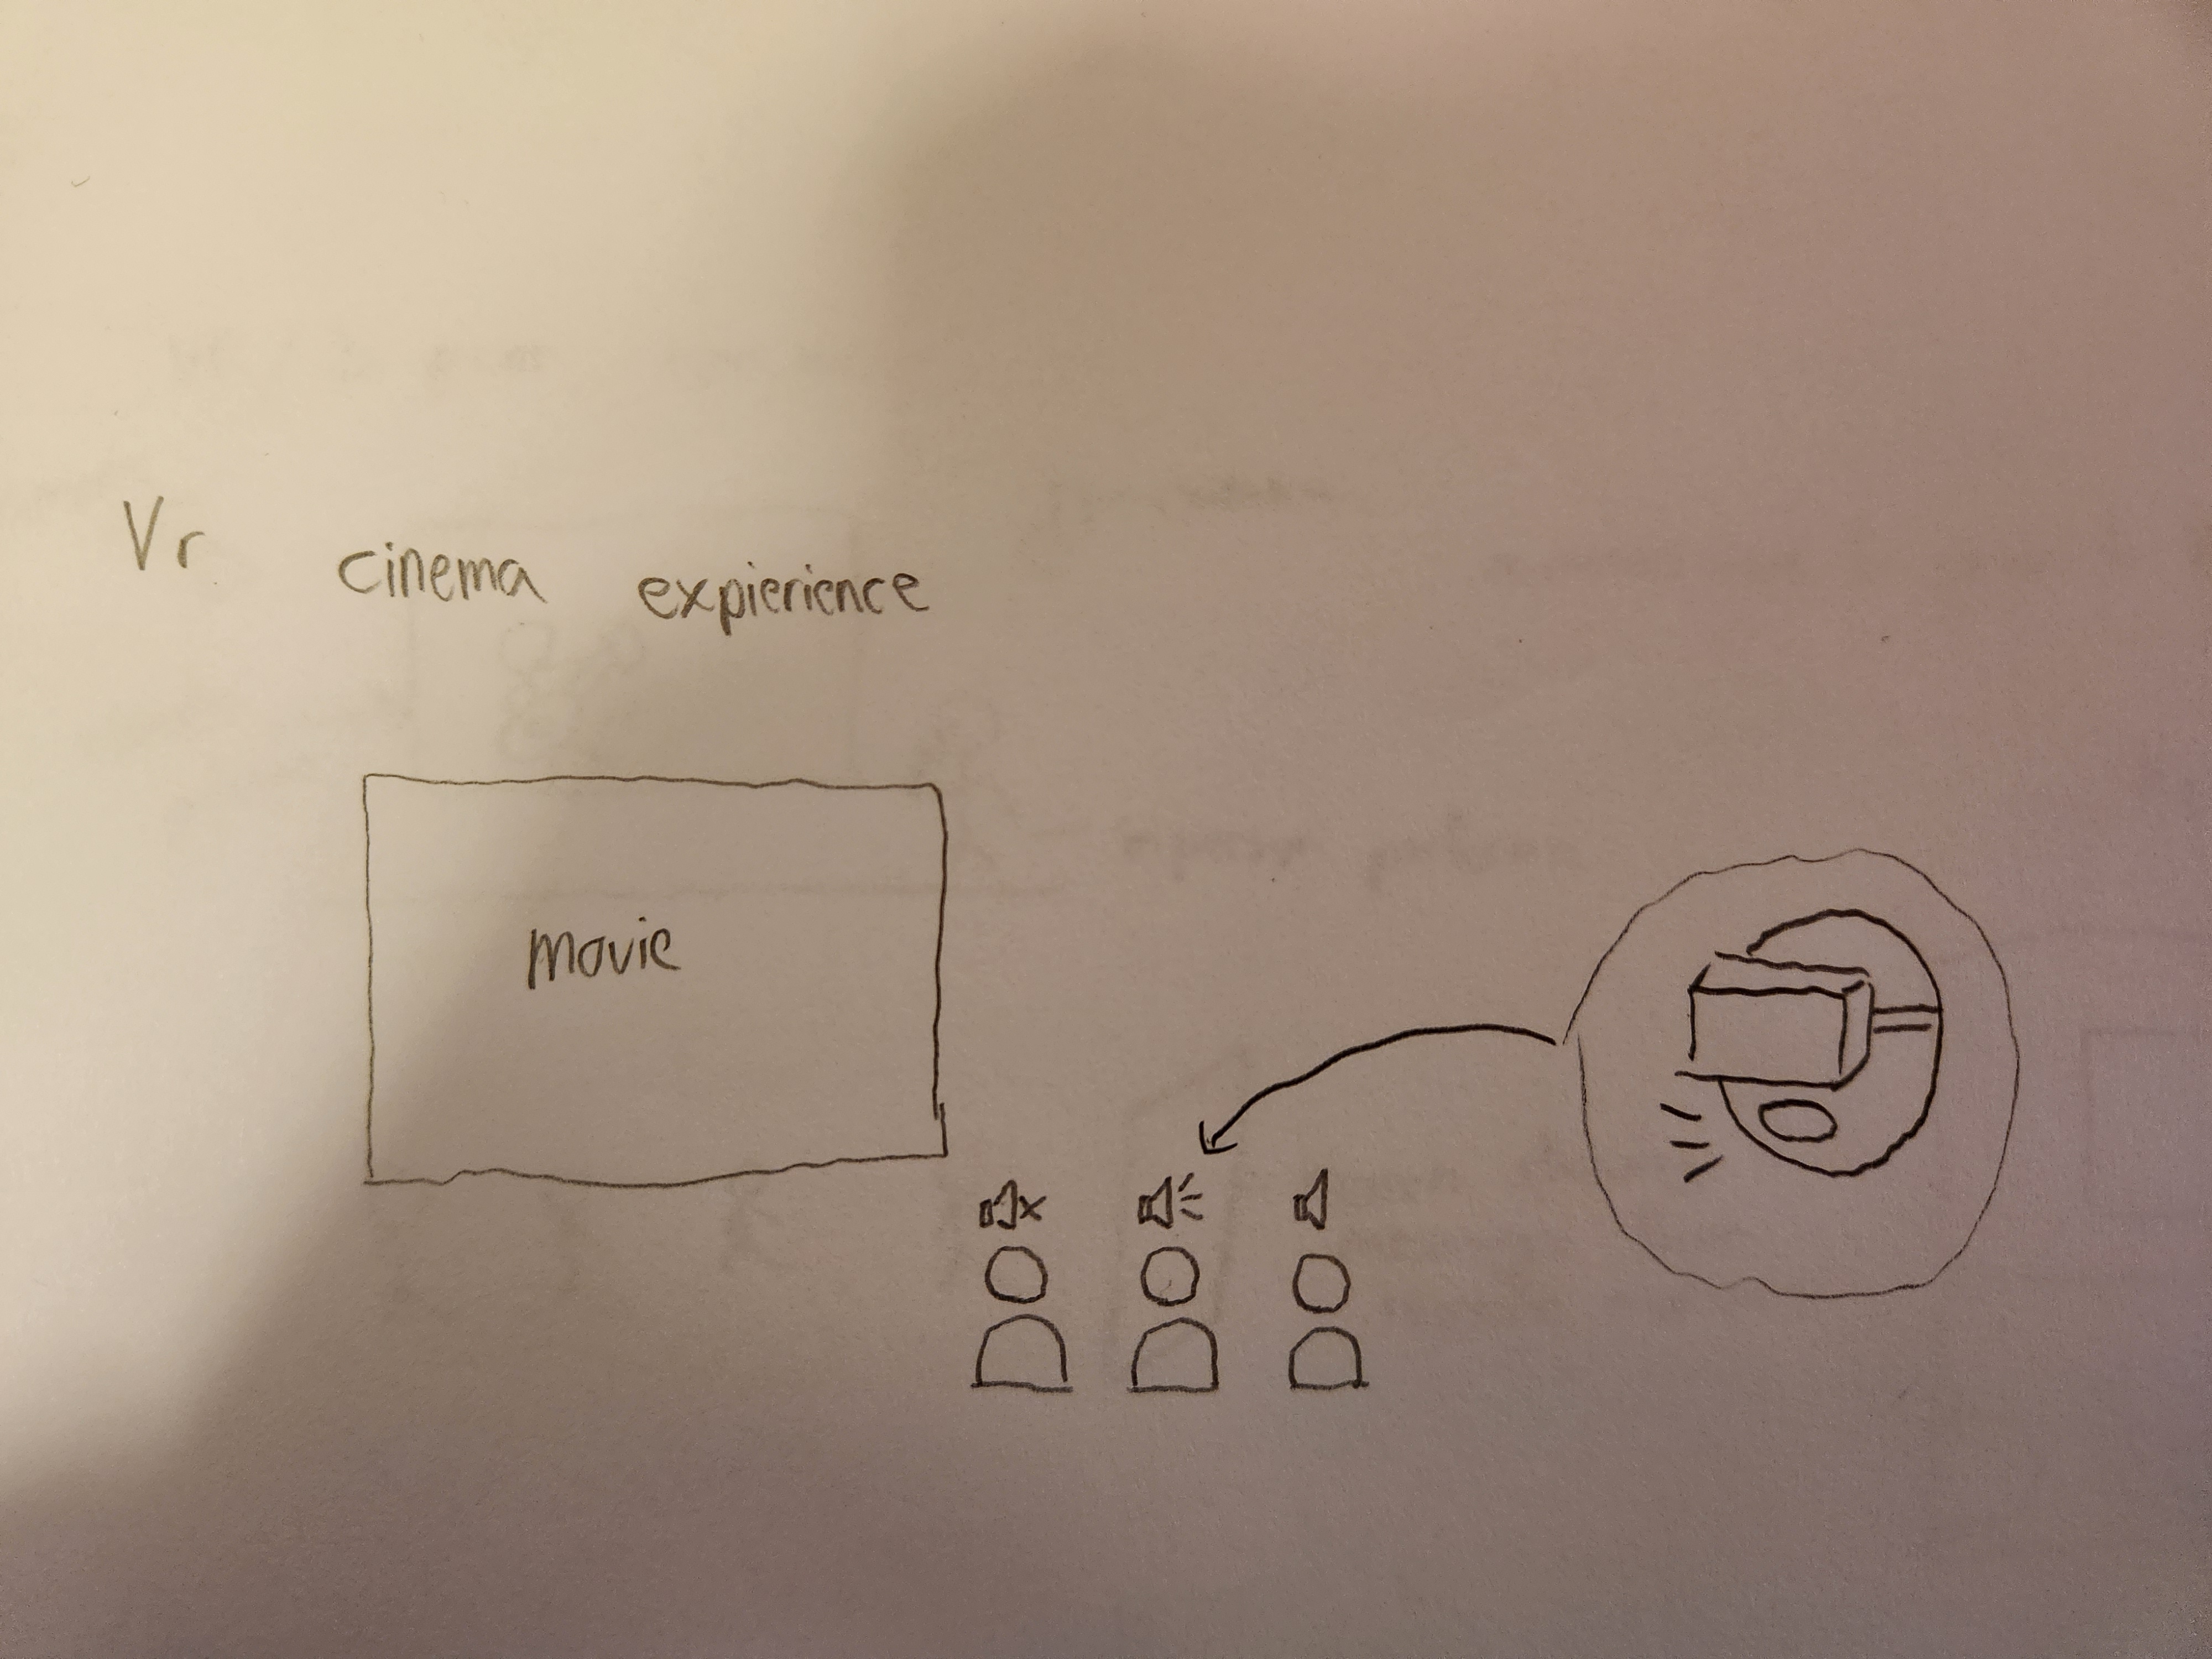 Vr cinema expierience
movie